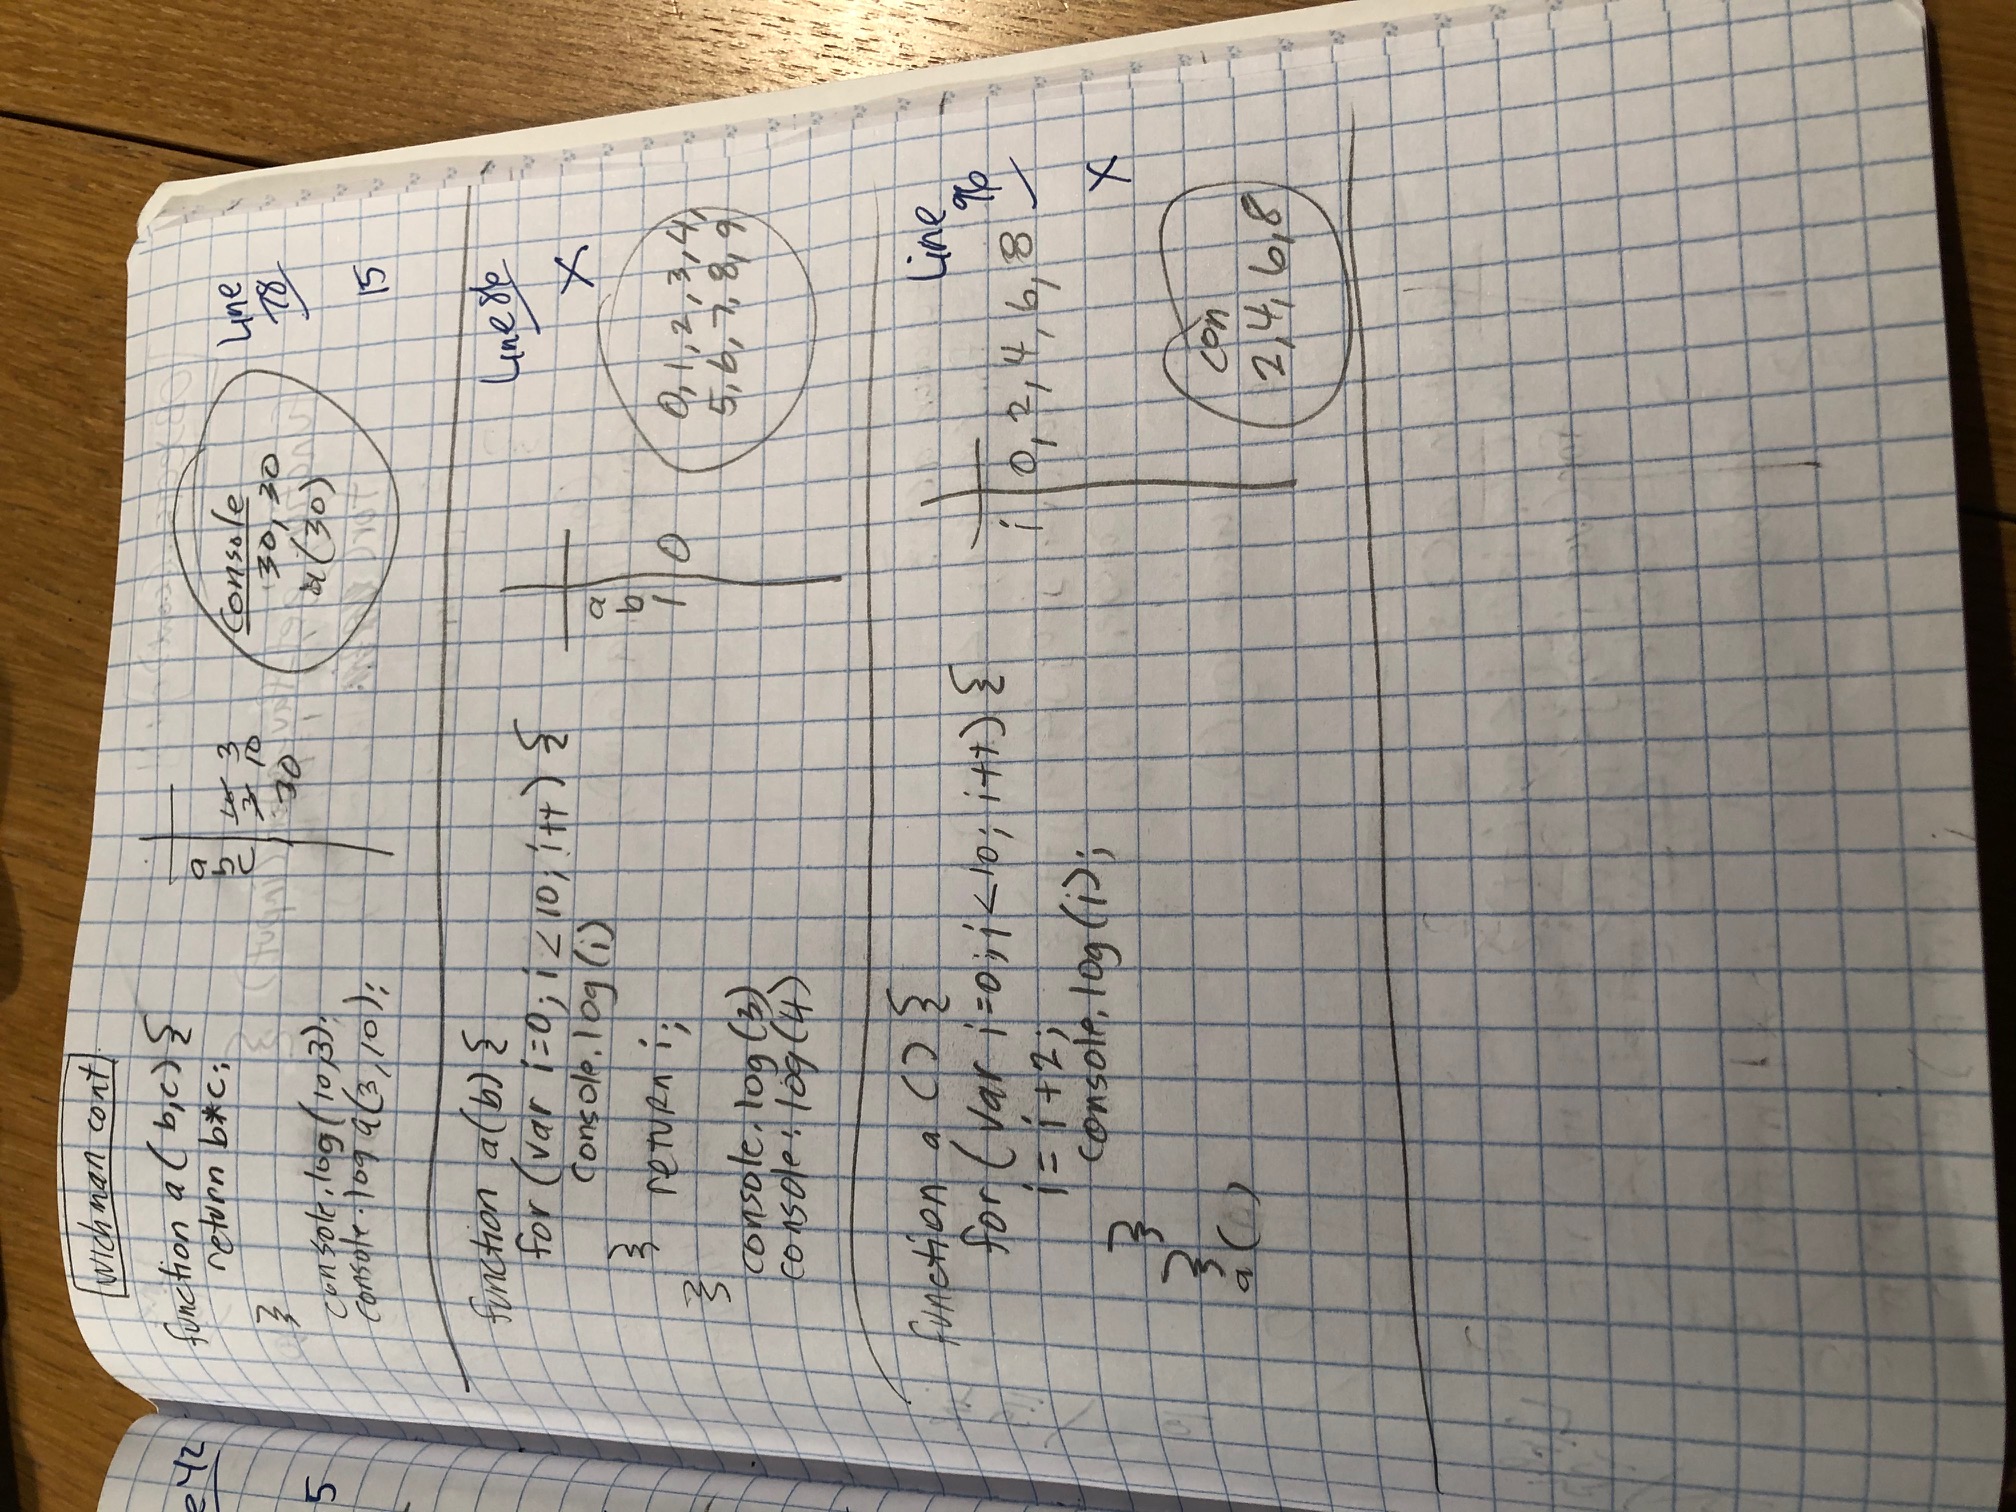 wichman cont.
e 42
5
function a ( b,c) {
return b*c;
}
console.log(10,3);
console.log a(3,10);
a
b 10 3
c 3 10
30
console
30, 30
a(30)
Line
78
15
function a(b) {
for (var i=0; i<10; i++) {
console.log(i)
}
return i;
}
console.log(3)
console.log(4)
a
b
i 0
Line 86
X
0,1,2,3,4,
5,6,7,8,9
function a () {
for ( var i=0; i<10; i++) {
i = i +2;
console.log(i);
}
}
a ( )
i 0, 2, 4, 6, 8
Line
96
X
con
2,4, 6,8